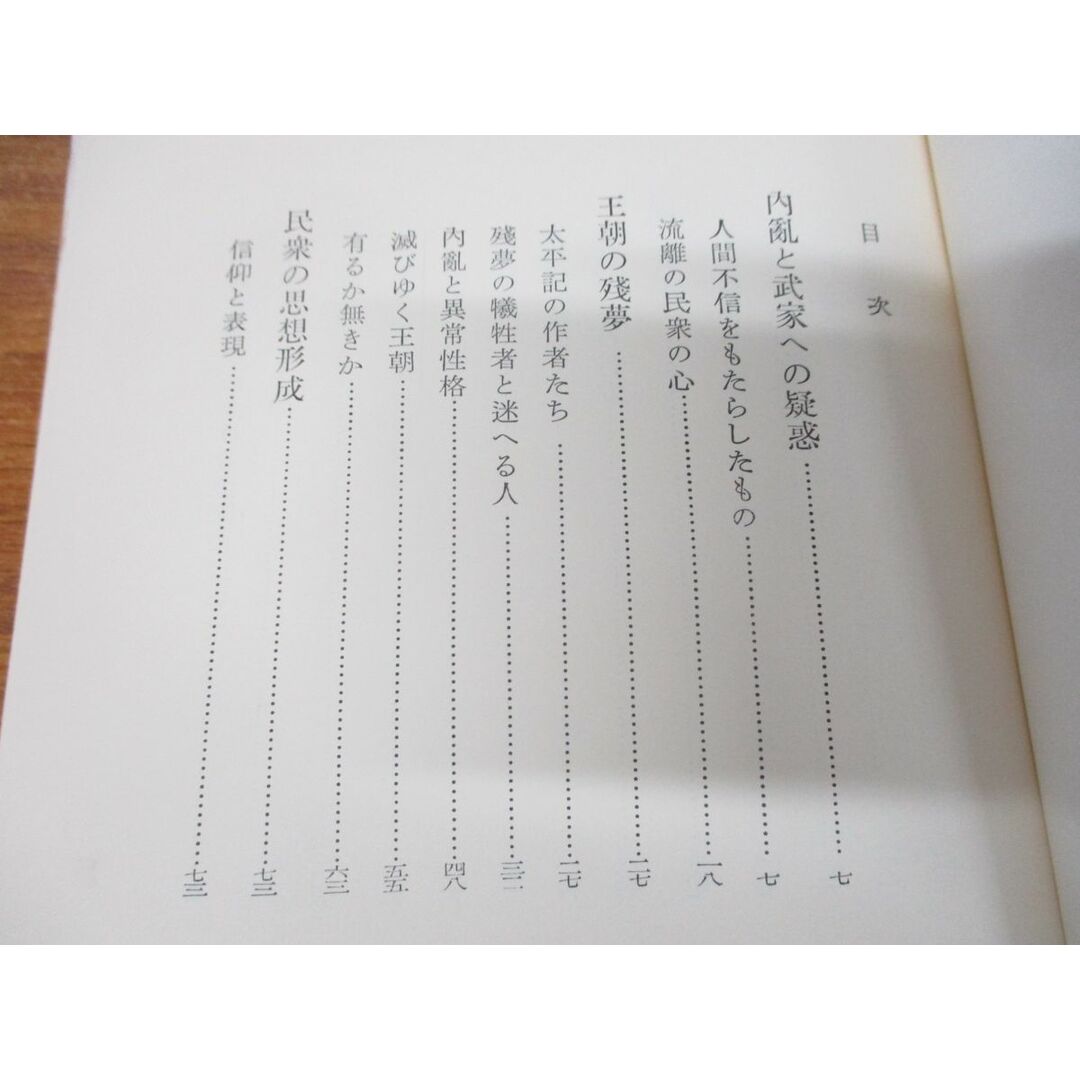 目次
內亂と武家への疑惑……七
人間不信をもたらしたもの……七
流離の民衆の心……一八
王朝の殘夢……二七
太平記の作者たち……二七
殘夢の犧牲者と迷へる人……三二
內亂と異常性格……四八
滅びゆく王朝……五五
有るか無きか……六三
民衆の思想形成……七三
信仰と表現……七三